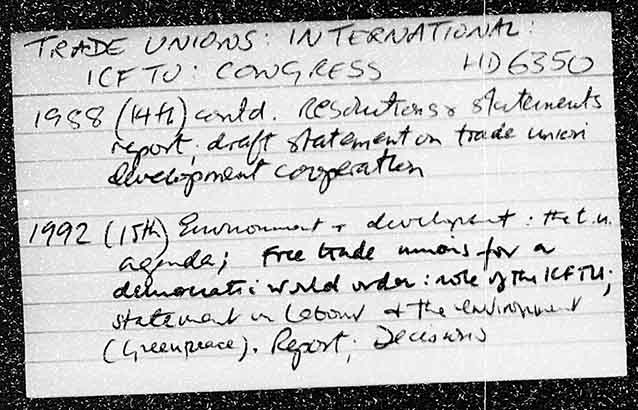 TRADE UNIONS: INTERNATIONAL:
ICFTU: CONGRESS HD6350
1988 (14th) contd. Resolutions & statements
report; draft statement on trade union
development cooperation
1992 (15th) Environment & development: the t.u.
agenda; Free trade unions for a
democratic world order: role of the ICFTU;
statement on labour & the environment
(Greenpeace). Report; Decisions